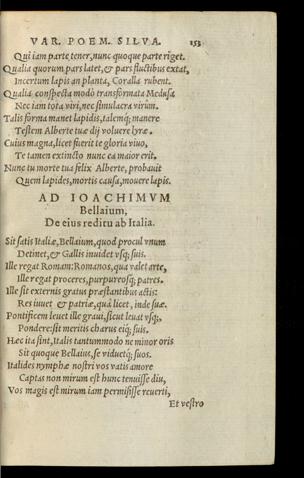 VAR. POEM. SILVA. 153
Qui iam parte tener, nunc quoque parte riget.
Qualia quorum pars latet, & pars fluctibus extat,
Incertum lapis an planta, Coralla rubent.
Qualia conspecta modò transformata Medusa
Nec iam tota viri, nec simulacra virûm.
Talis forma manet lapidis, talemq; manere
Testem Alberte tuæ dij voluere lyræ.
Cuius magna, licet fuerit te gloria viuo,
Te tamen extincto nunc ea maior erit.
Nunc tu morte tua felix Alberte, probauit
Quem lapides, mortis causa, mouere lapis.
AD IOACHIMVM
Bellaium,
De eius reditu ab Italia.
Sit satis Italiæ, Bellaium, quod procul vnum
Detinet, & Gallis inuidet vsq; suis.
Ille regat Romam: Romanos, qua valet arte,
Ille regat proceres, purpureosq; patres.
Ille sit externis gratus præstantibus actis:
Res iuuet & patriæ, quà licet, inde suæ.
Pontificem leuet ille graui, sicut leuat vsq;,
Pondere: sit meritis charus eiq; suis.
Hæc ita sint, Italis tantummodo ne minor oris
Sit quoque Bellaius, se viduetq; suos.
Italides nymphæ nostri vos vatis amore
Captas non mirum est hunc tenuisse diu,
Vos magis est mirum iam permisisse reuerti,
Et vestro